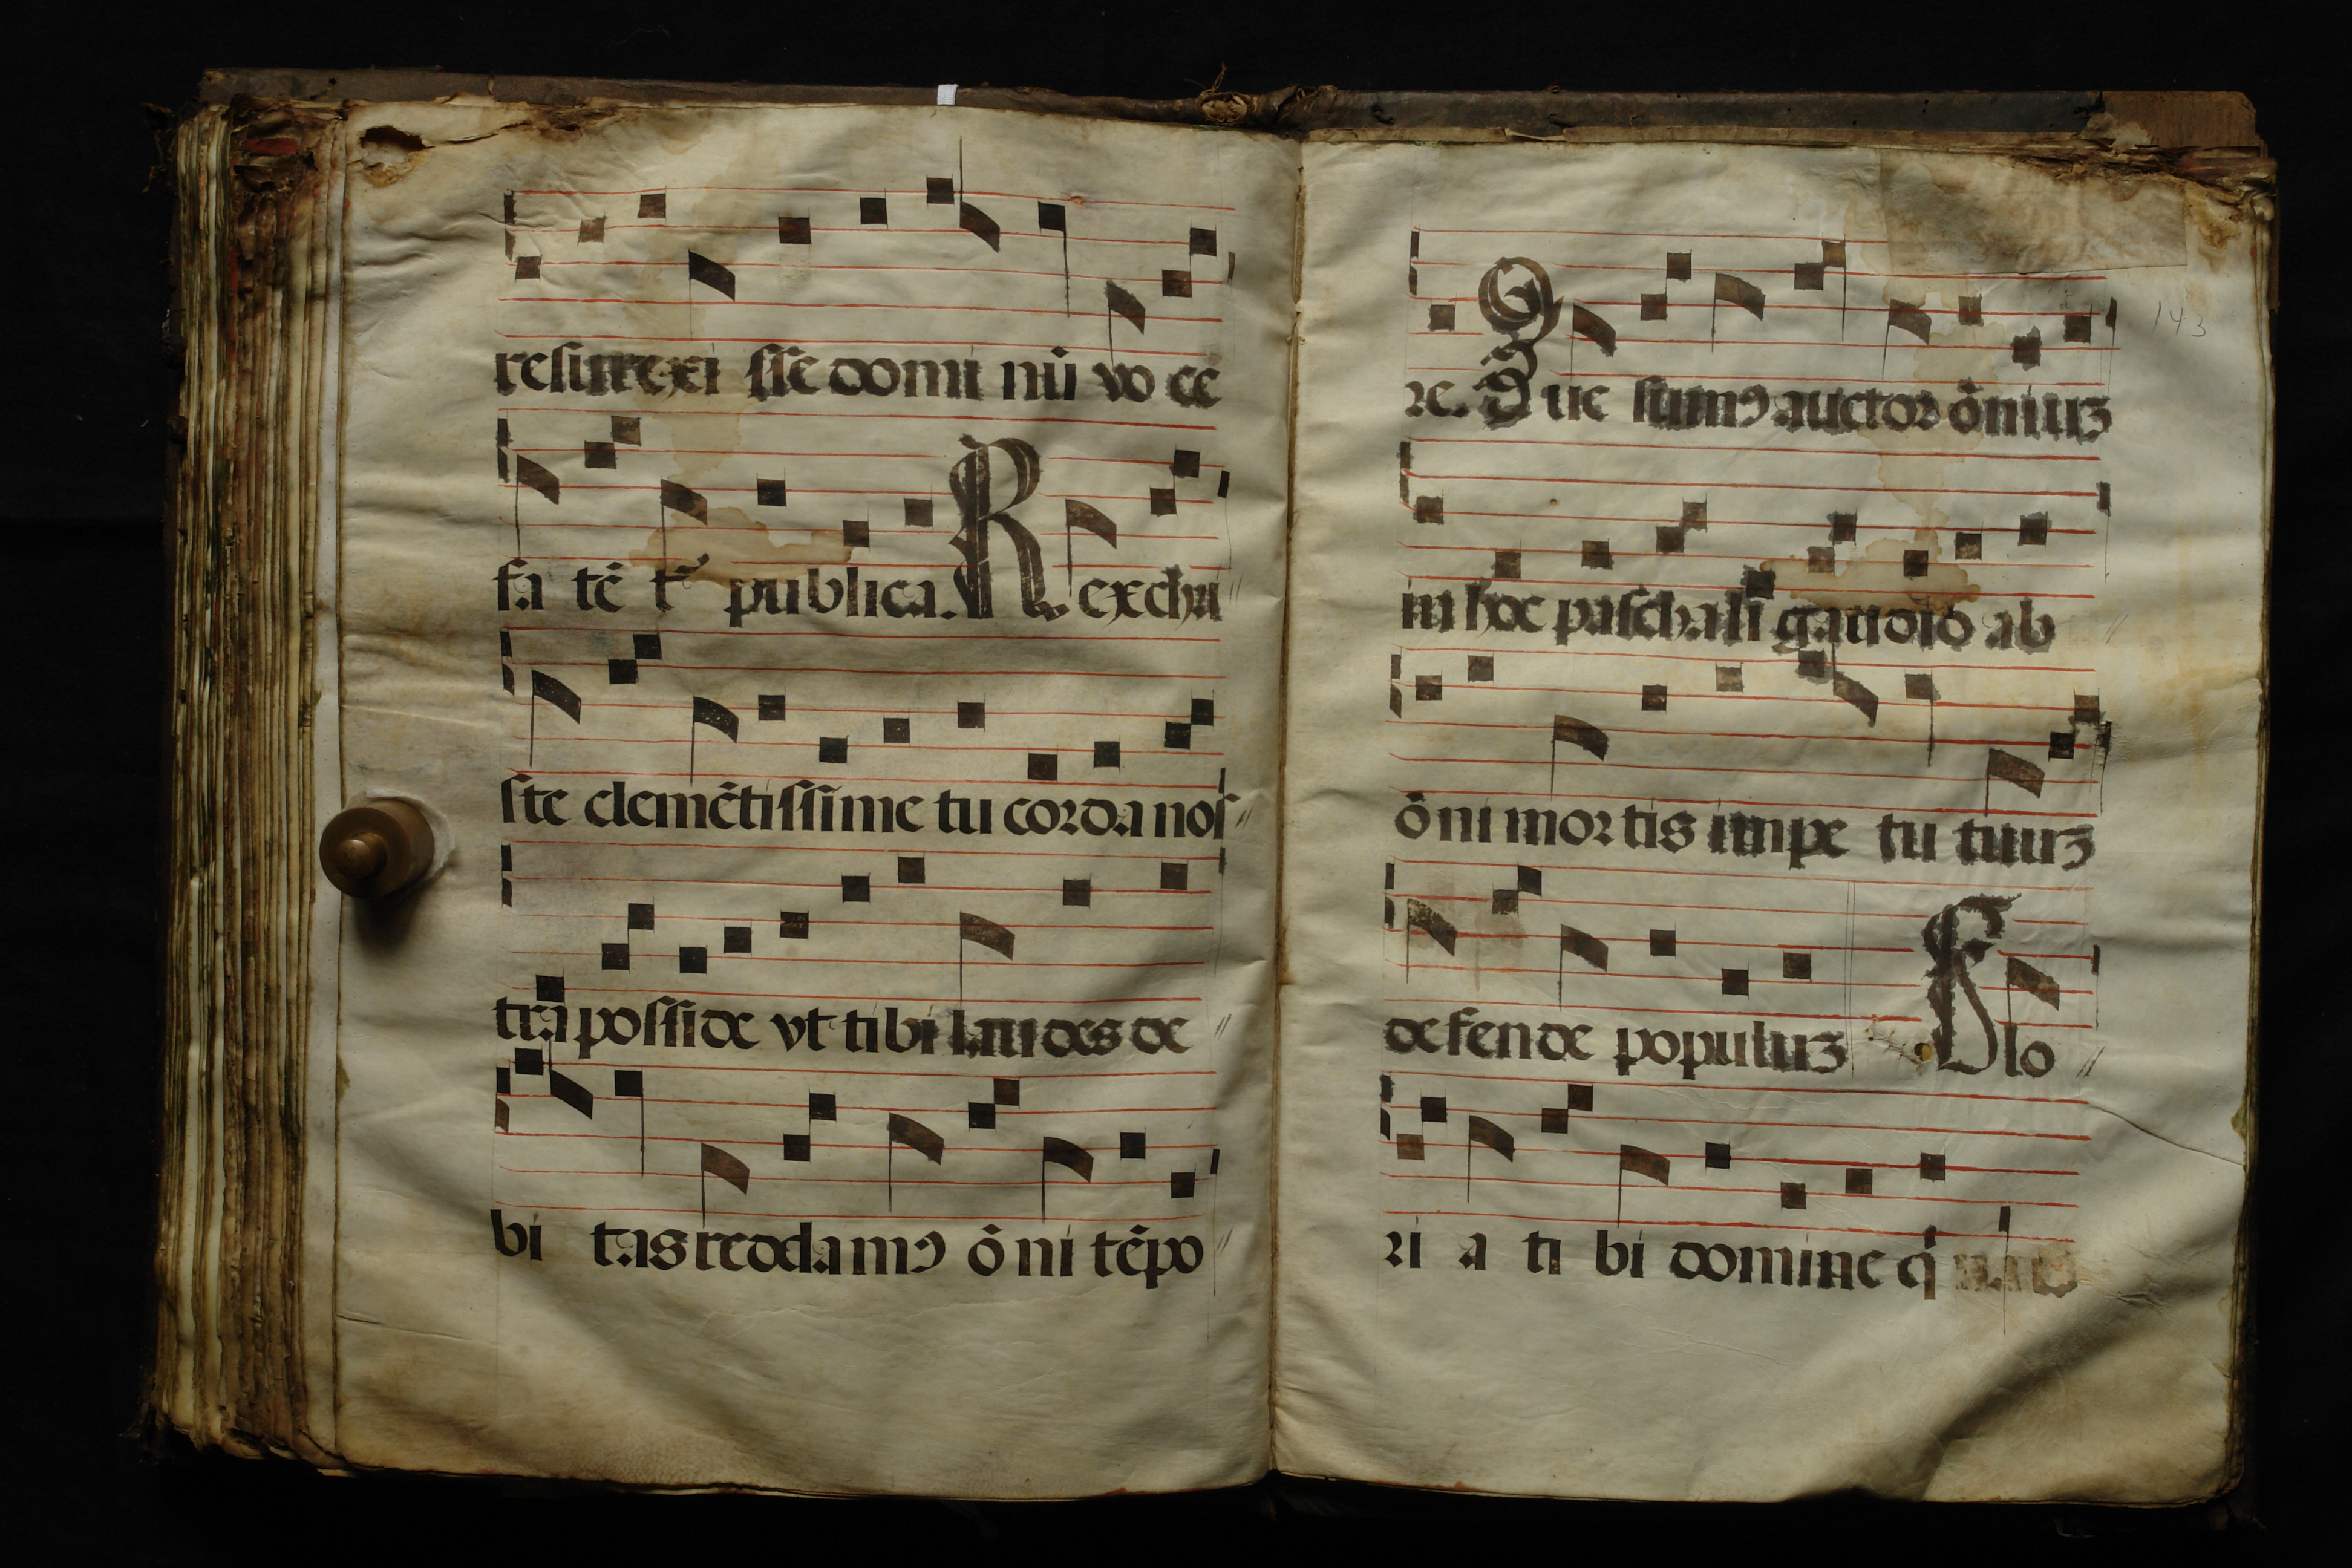 resurrexi sse domi nū vo ce
fa tē t² publica. Rexchri
ste clemētissime tu corda nos
tra posside vt tibi laudes de
bi tas reddamꝰ ōni tēpo
143
re. Que sumꝰ auctor ōniuꝫ
in hoc paschali gaudio ab
ōni mortis impe tu tuuꝫ
defende populuꝫ Glo
ri a ti bi domine q